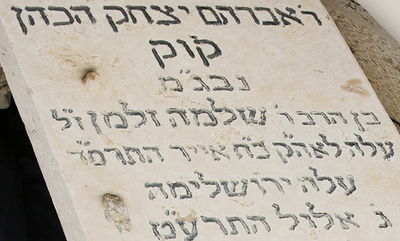 ר' אברהם יצחק הכהן
קוק
נבג"מ
בן הרב ר' שלמה זלמן ז"ל
עלה לאה"ק כ"ח אייר התרס"ד
עלה ירושלימה
ג' אלול התרע"ט